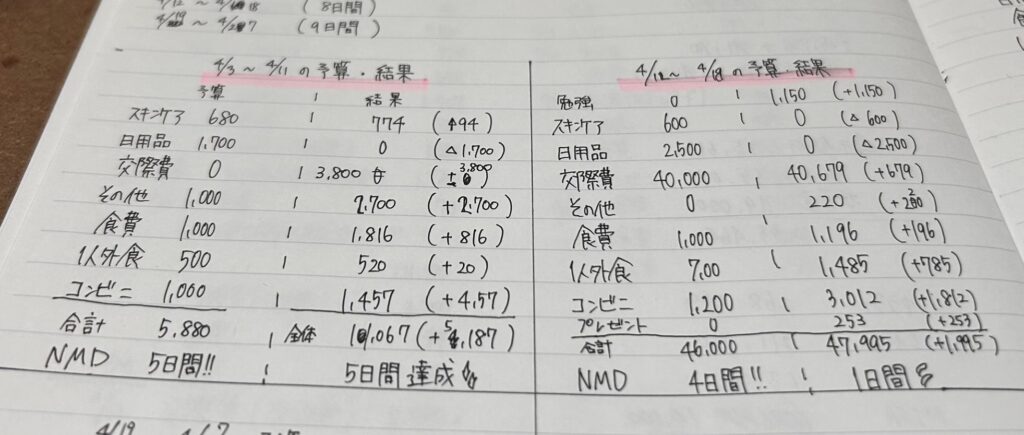 4/12 ～ 4/18 (8日間)
4/19 ～ 4/27 (9日間)
4/3 ～ 4/11 の予算・結果
予算 | 結果
スキンケア 680 774 (+94)
日用品 1,700 0 (△1,700)
交際費 0 | 3,800 (+3,800)
その他 1,000 2,700 (+2,700)
食費 1,000 | 1,816 (+816)
1人外食 500 | 520 (+20)
コンビニ 1,000 | 1,457 (+4,57)
合計 5,880 | 全体 11,067 (+5,187)
NMD 5日間!! | 5日間達成
4/12～ 4/18 の予算・結果
勉強 0 | 1,150 (+1,150)
スキンケア 600 | 0 (△600)
日用品 2,500 | 0 (△2,500)
交際費 40,000 | 40,679 (+679)
その他 0 220 (+220)
食費 1,000 | 1,196 (+196)
1人外食 7,00 | 1,485 (+785)
コンビニ 1,200 | 3,012 (+1,812)
プレゼント 0 253 (+253)
合計 46,000 | 47,995 (+1,995)
NMD 4日間!! | 1日間
4/19